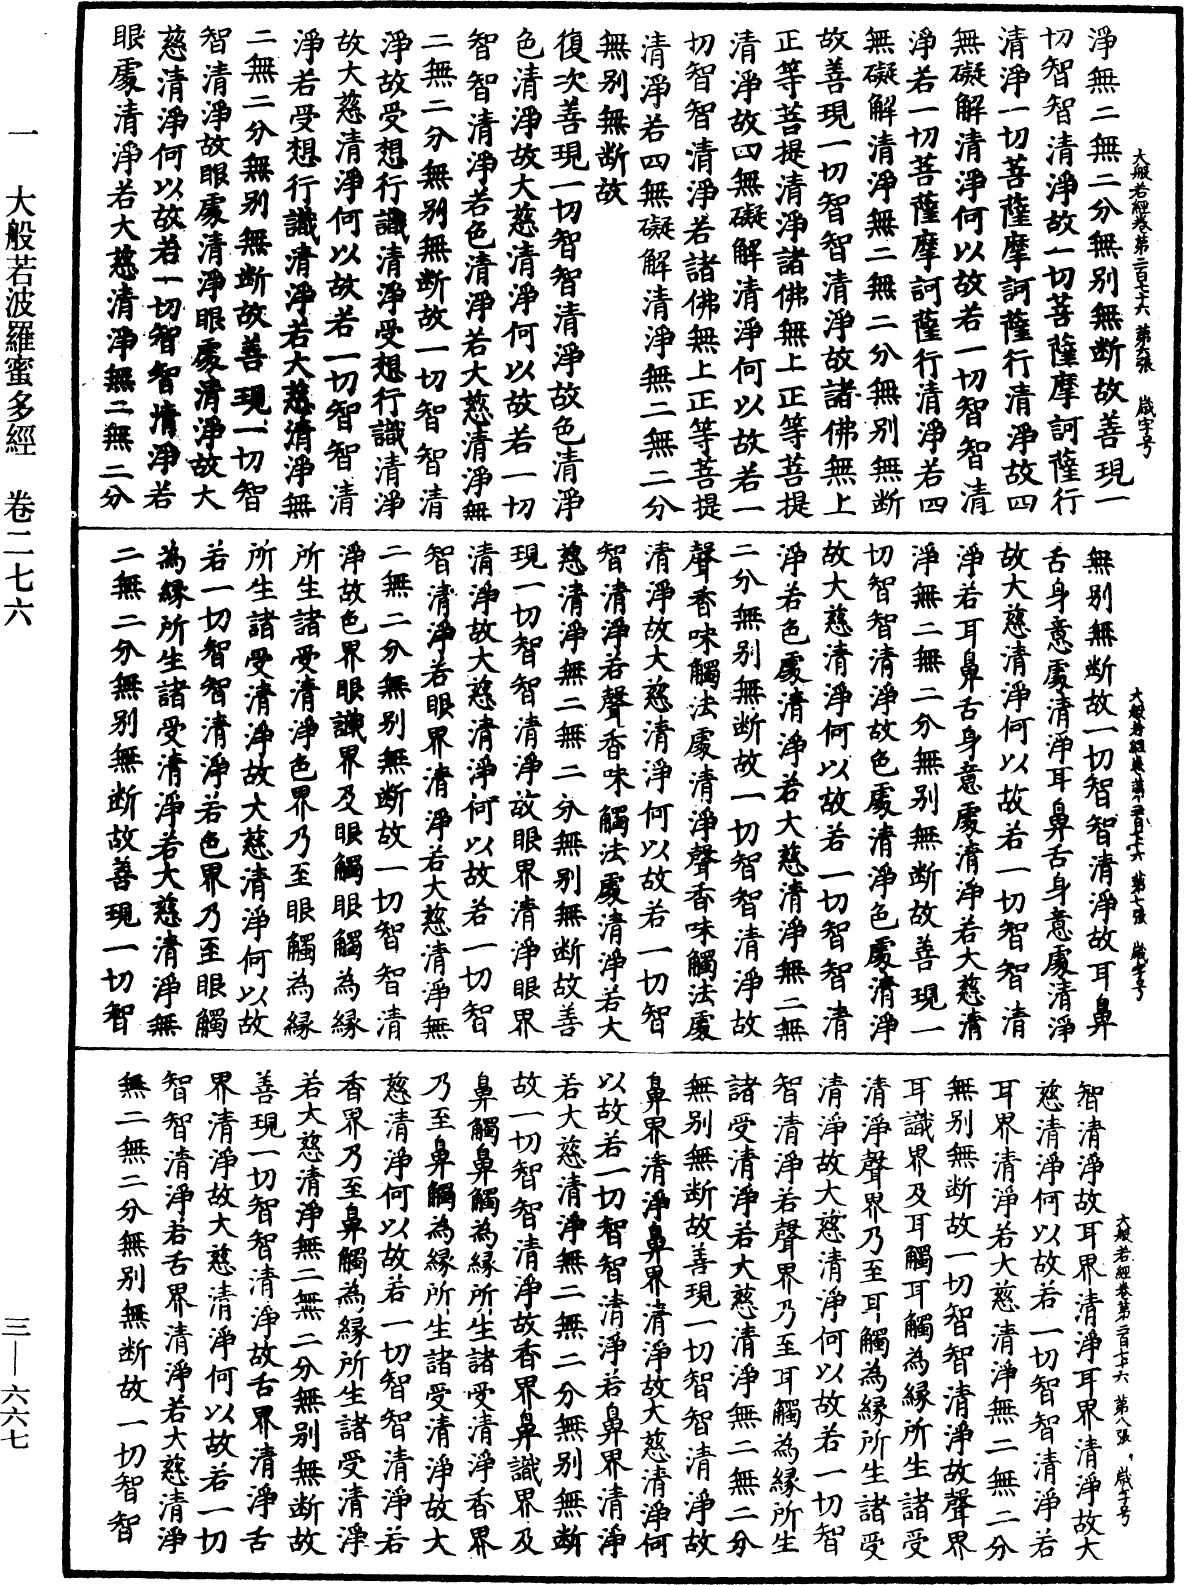 大般若經卷第二百七十六 第六張 咸字号
淨無二無二分無別無斷故善現一
切智智清淨故一切菩薩摩訶薩行
清淨一切菩薩摩訶薩行清淨故四
無礙解清淨何以故若一切智智清
淨若一切菩薩摩訶薩行清淨若四
無礙解清淨無二無二分無別無斷
故善現一切智智清淨故諸佛無上
正等菩提清淨諸佛無上正等菩提
清淨故四無礙解清淨何以故若一
切智智清淨若諸佛無上正等菩提
清淨若四無礙解清淨無二無二分
無別無斷故
復次善現一切智智清淨故色清淨
色清淨故大慈清淨何以故若一切
智智清淨若色清淨若大慈清淨無
二無二分無別無斷故一切智智清
淨故受想行識清淨受想行識清淨
故大慈清淨何以故若一切智智清
淨若受想行識清淨若大慈清淨無
二無二分無別無斷故善現一切智
智清淨故眼處清淨眼處清淨故大
慈清淨何以故若一切智智清淨若
眼處清淨若大慈清淨無二無二分
大般若經卷第二百七十六 第七張 咸字号
無別無斷故一切智智清淨故耳鼻
舌身意處清淨耳鼻舌身意處清淨
故大慈清淨何以故若一切智智清
淨若耳鼻舌身意處清淨若大慈清
淨無二無二分無別無斷故善現一
切智智清淨故色處清淨色處清淨
故大慈清淨何以故若一切智智清
淨若色處清淨若大慈清淨無二無
二分無別無斷故一切智智清淨故
聲香味觸法處清淨聲香味觸法處
清淨故大慈清淨何以故若一切智
智清淨若聲香味觸法處清淨若大
慈清淨無二無二分無別無斷故善
現一切智智清淨故眼界清淨眼界
清淨故大慈清淨何以故若一切智
智清淨若眼界清淨若大慈清淨無
二無二分無別無斷故一切智智清
淨故色界眼識界及眼觸眼觸為緣
所生諸受清淨色界乃至眼觸為緣
所生諸受清淨故大慈清淨何以故
若一切智智清淨若色界乃至眼觸
為緣所生諸受清淨若大慈清淨無
二無二分無別無斷故善現一切智
大般若經卷第二百七十六 第八張 咸字号
智清淨故耳界清淨耳界清淨故大
慈清淨何以故若一切智智清淨若
耳界清淨若大慈清淨無二無二分
無別無斷故一切智智清淨故聲界
耳識界及耳觸耳觸為緣所生諸受
清淨聲界乃至耳觸為緣所生諸受
清淨故大慈清淨何以故若一切智
智清淨若聲界乃至耳觸為緣所生
諸受清淨若大慈清淨無二無二分
無別無斷故善現一切智智清淨故
鼻界清淨鼻界清淨故大慈清淨何
以故若一切智智清淨若鼻界清淨
若大慈清淨無二無二分無別無斷
故一切智智清淨故香界鼻識界及
鼻觸鼻觸為緣所生諸受清淨香界
乃至鼻觸為緣所生諸受清淨故大
慈清淨何以故若一切智智清淨若
香界乃至鼻觸為緣所生諸受清淨
若大慈清淨無二無二分無別無斷故
善現一切智智清淨故舌界清淨舌
界清淨故大慈清淨何以故若一切
智智清淨若舌界清淨若大慈清淨
無二無二分無別無斷故一切智智
一 大般若波羅蜜多經 卷二七六
三—六六七